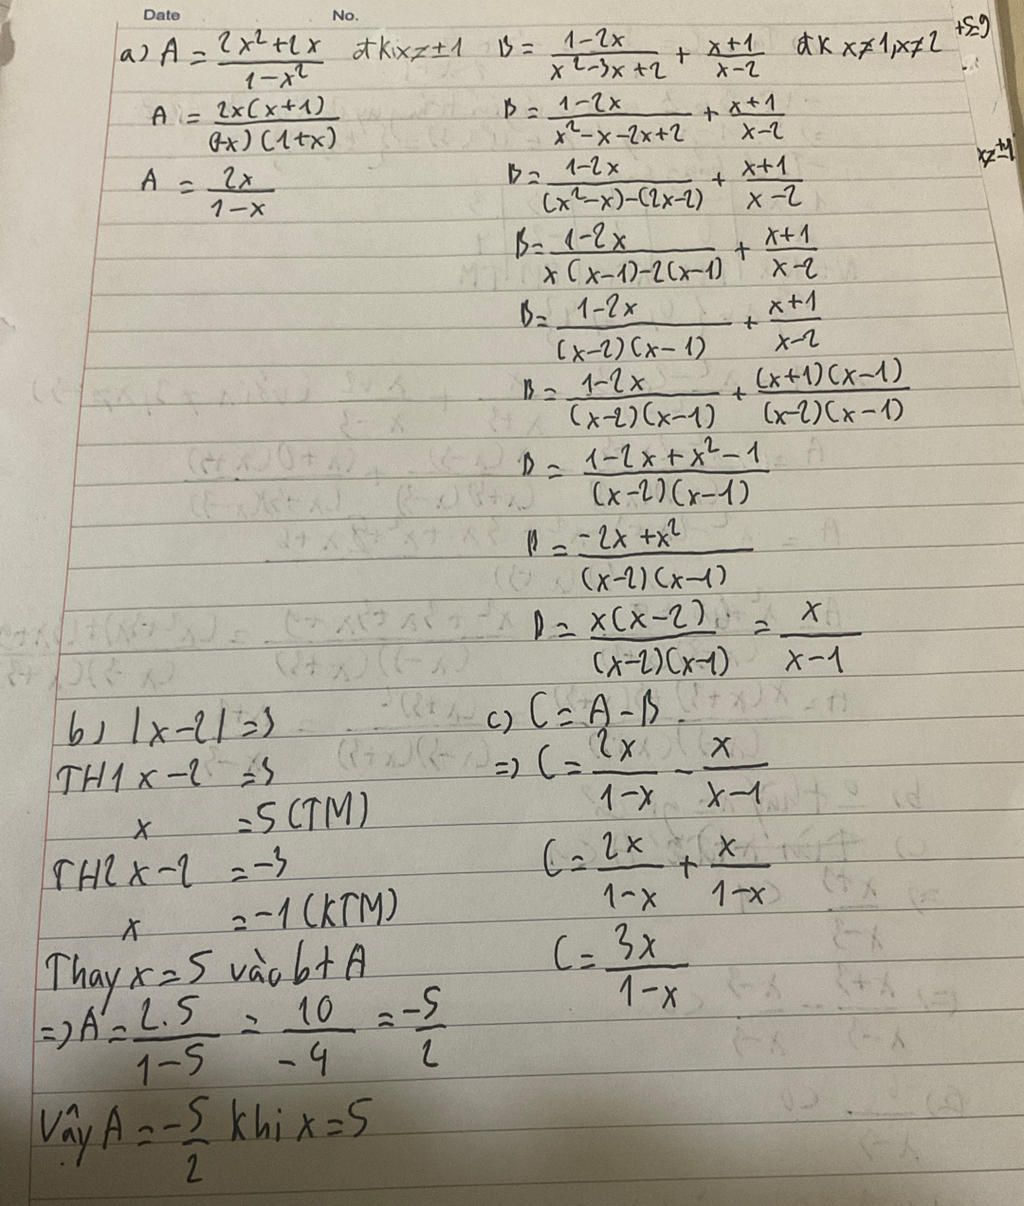 Date No.
a) A = (2x²+2x)/(1-x²) đk: x≠±1 B = (1-2x)/(x²-3x+2) + (x+1)/(x-2) đk x≠1, x≠2
A = 2x(x+1)/((1-x)(1+x)) B = (1-2x)/(x²-x-2x+2) + (x+1)/(x-2)
A = 2x/(1-x) B = (1-2x)/((x²-x)-(2x-2)) + (x+1)/(x-2)
B = (1-2x)/(x(x-1)-2(x-1)) + (x+1)/(x-2)
B = (1-2x)/((x-2)(x-1)) + (x+1)/(x-2)
B = (1-2x)/((x-2)(x-1)) + (x+1)(x-1)/((x-2)(x-1))
B = (1-2x+x²-1)/((x-2)(x-1))
B = (-2x+x²)/((x-2)(x-1))
B = x(x-2)/((x-2)(x-1)) = x/(x-1)
b) |x-2|=3
TH1 x-2 =3
x =5 (TM)
TH2 x-2 =-3
x =-1 (KTM)
Thay x=5 vào bt A
=> A = 2.5/(1-5) = 10/-4 = -5/2
Vậy A = -5/2 khi x=5
c) C = A - B
=> C = 2x/(1-x) - x/(x-1)
C = 2x/(1-x) + x/(1-x)
C = 3x/(1-x)